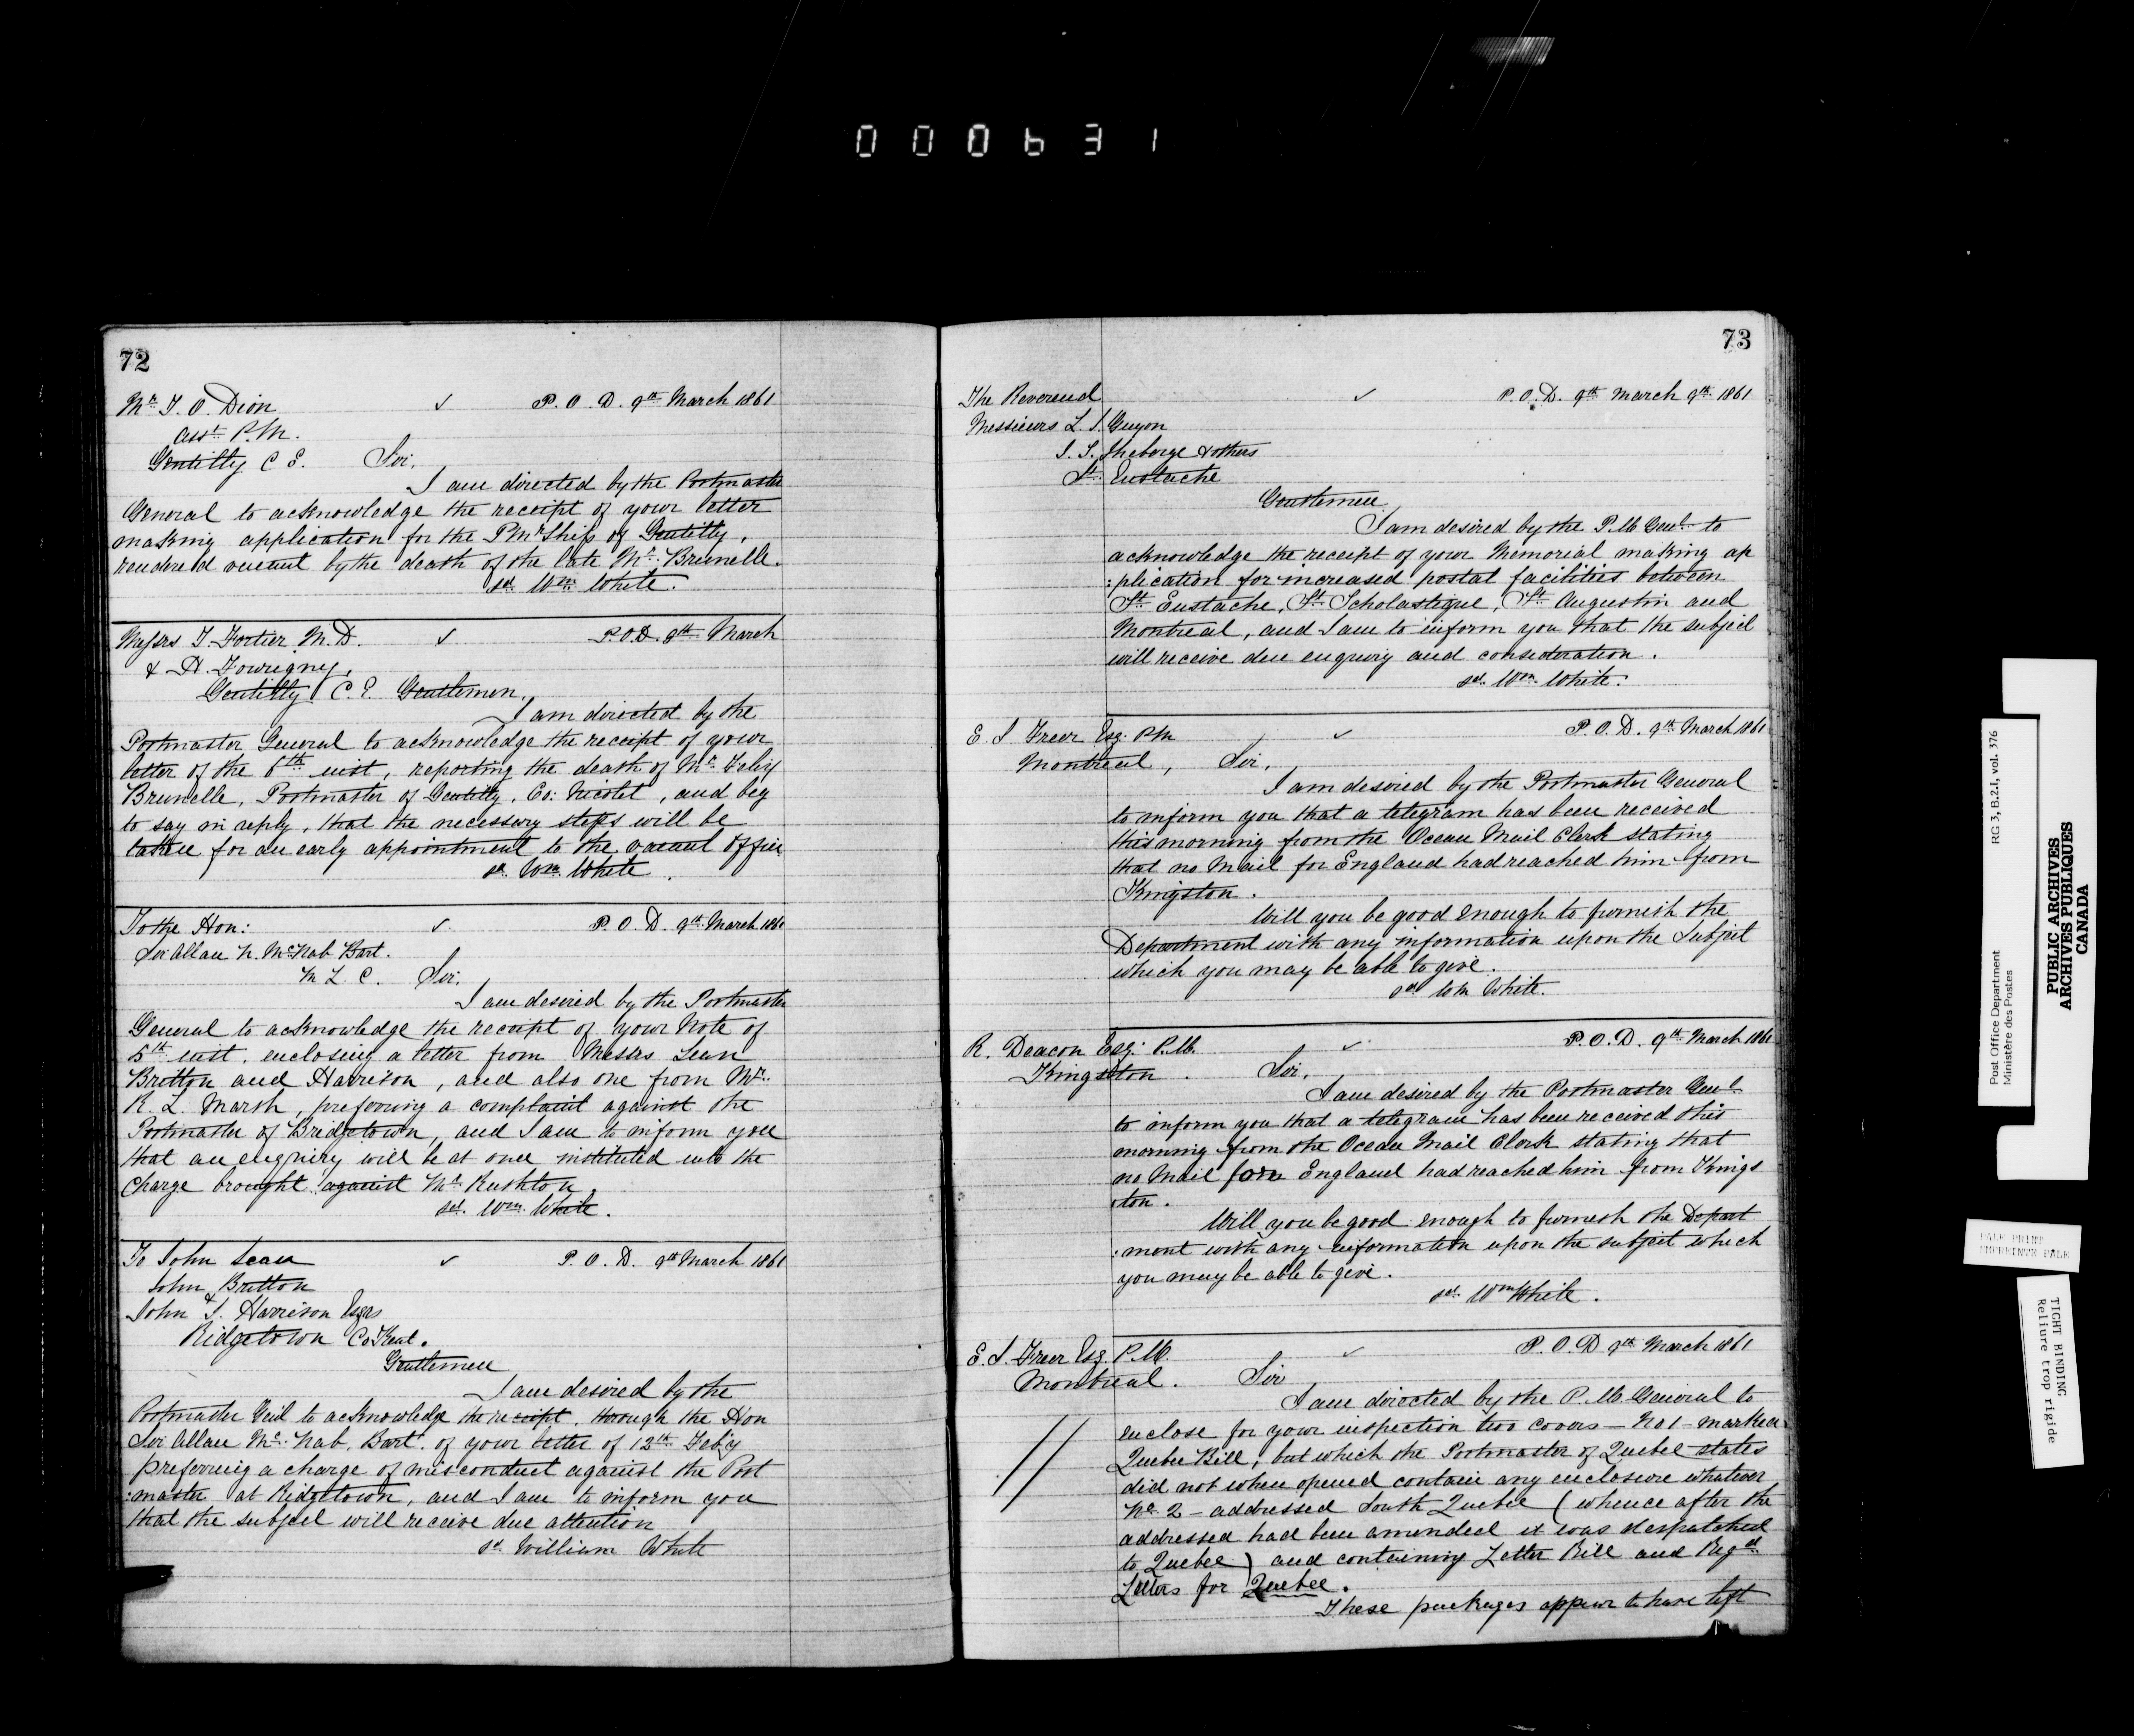 000631
72
Mr. T. O. Dion ✓ P. O. D. 9th March 1861
Asst. P.M.
Gentilly C E. Sir,
I am directed by the Postmaster
General to acknowledge the receipt of your letter
making application for the PMrShip of Gentilly,
rendered vacant by the death of the late Mr. Brunelle.
sd. Wm. White.
Messrs T. Fortier M.D. ✓ P.O.D. 9th March
& A.
Gentilly C.E. Gentlemen,
I am directed by the
Postmaster General to acknowledge the receipt of your
letter of the 6th inst, reporting the death of Mr. Felix
Brunelle, Postmaster of Gentilly, Co: Nicolet, and beg
to say in reply, that the necessary steps will be
taken for an early appointment to the vacant Office
sd. Wm. White.
To the Hon: ✓ P. O. D. 9th March 1861
Sir Allan N. McNab Bart.
M L. C. Sir,
I am desired by the Postmaster
General to acknowledge the receipt of your Note of
5th inst. enclosing a letter from Messrs Scan
Britton and Harrison, and also one from Mr.
R. L. Marsh, preferring a complaint against the
Postmaster of Bridgetown, and I am to inform you
that an enquiry will be at once instituted into the
Charge brought against Mr Rushton.
sd. Wm. White.
To John Scan ✓ P. O. D. 9th March 1861
John Britton
&
John S. Harrison Esqrs
Ridgetown Co Kent.
Gentlemen
I am desired by the
Postmaster Genl to acknowledge the receipt, through the Hon
Sir Allan Mc.Nab, Bart. of your letter of 12th Feb'y
preferring a charge of misconduct against the Post
:master at Ridgetown, and I am to inform you
that the subject will receive due attention
sd William White
73
The Reverend ✓ P.O.D. 9th March 9th 1861
Messieurs L. I. Guyon
& others
St. Eustache
Gentlemen
I am desired by the P.M. Genl. to
acknowledge the receipt of your Memorial making ap
:plication for increased postal facilities between
St. Eustache, St. Scholastique, St. Augustin and
Montreal, and I am to inform you that the subject
will receive due enquiry and consideration.
sd. Wm. White.
E S Freer Esq. PM ✓ P. O. D. 9th March 1861
Montreal, Sir,
I am desired by the Postmaster General
to inform you that a telegram has been received
this morning from the Ocean Mail Clerk stating
that no Mail for England had reached him from
Kingston.
Will you be good enough to furnish the
Department with any information upon the Subject
which you may be able to give.
sd Wm White.
R. Deacon Esq: P.M. ✓ P. O. D. 9th March 1861
Kingston. Sir,
I am desired by the Postmaster Genl
to inform you that a telegram has been received this
morning from the Ocean Mail Clerk stating that
no Mail for England had reached him from Kings
:ton.
Will you be good enough to furnish the Depart
:ment with any information upon the subject which
you may be able to give.
sd. Wm White.
E. S. Freer Esq. P.M. ✓ P. O. D 9th March 1861
Montreal. Sir
I am directed by the P. M. General to
enclose for your inspection two covers – No 1 – marked
Quebec Bill, but which the Postmaster of Quebec states
did not when opened contain any enclosure whatever
No. 2 – addressed South Quebec (whence after the
addressed had been amended it was despatched
to Quebec) and containing Letter Bill and Regd
Letters for Quebec.
These packages appear to have left
Post Office Department
Ministère des Postes
RG 3, B.2.I, vol. 376
PUBLIC ARCHIVES
ARCHIVES PUBLIQUES
CANADA
PALE PRINT
EMPREINTE PALE
TIGHT BINDING
Reliure trop rigide